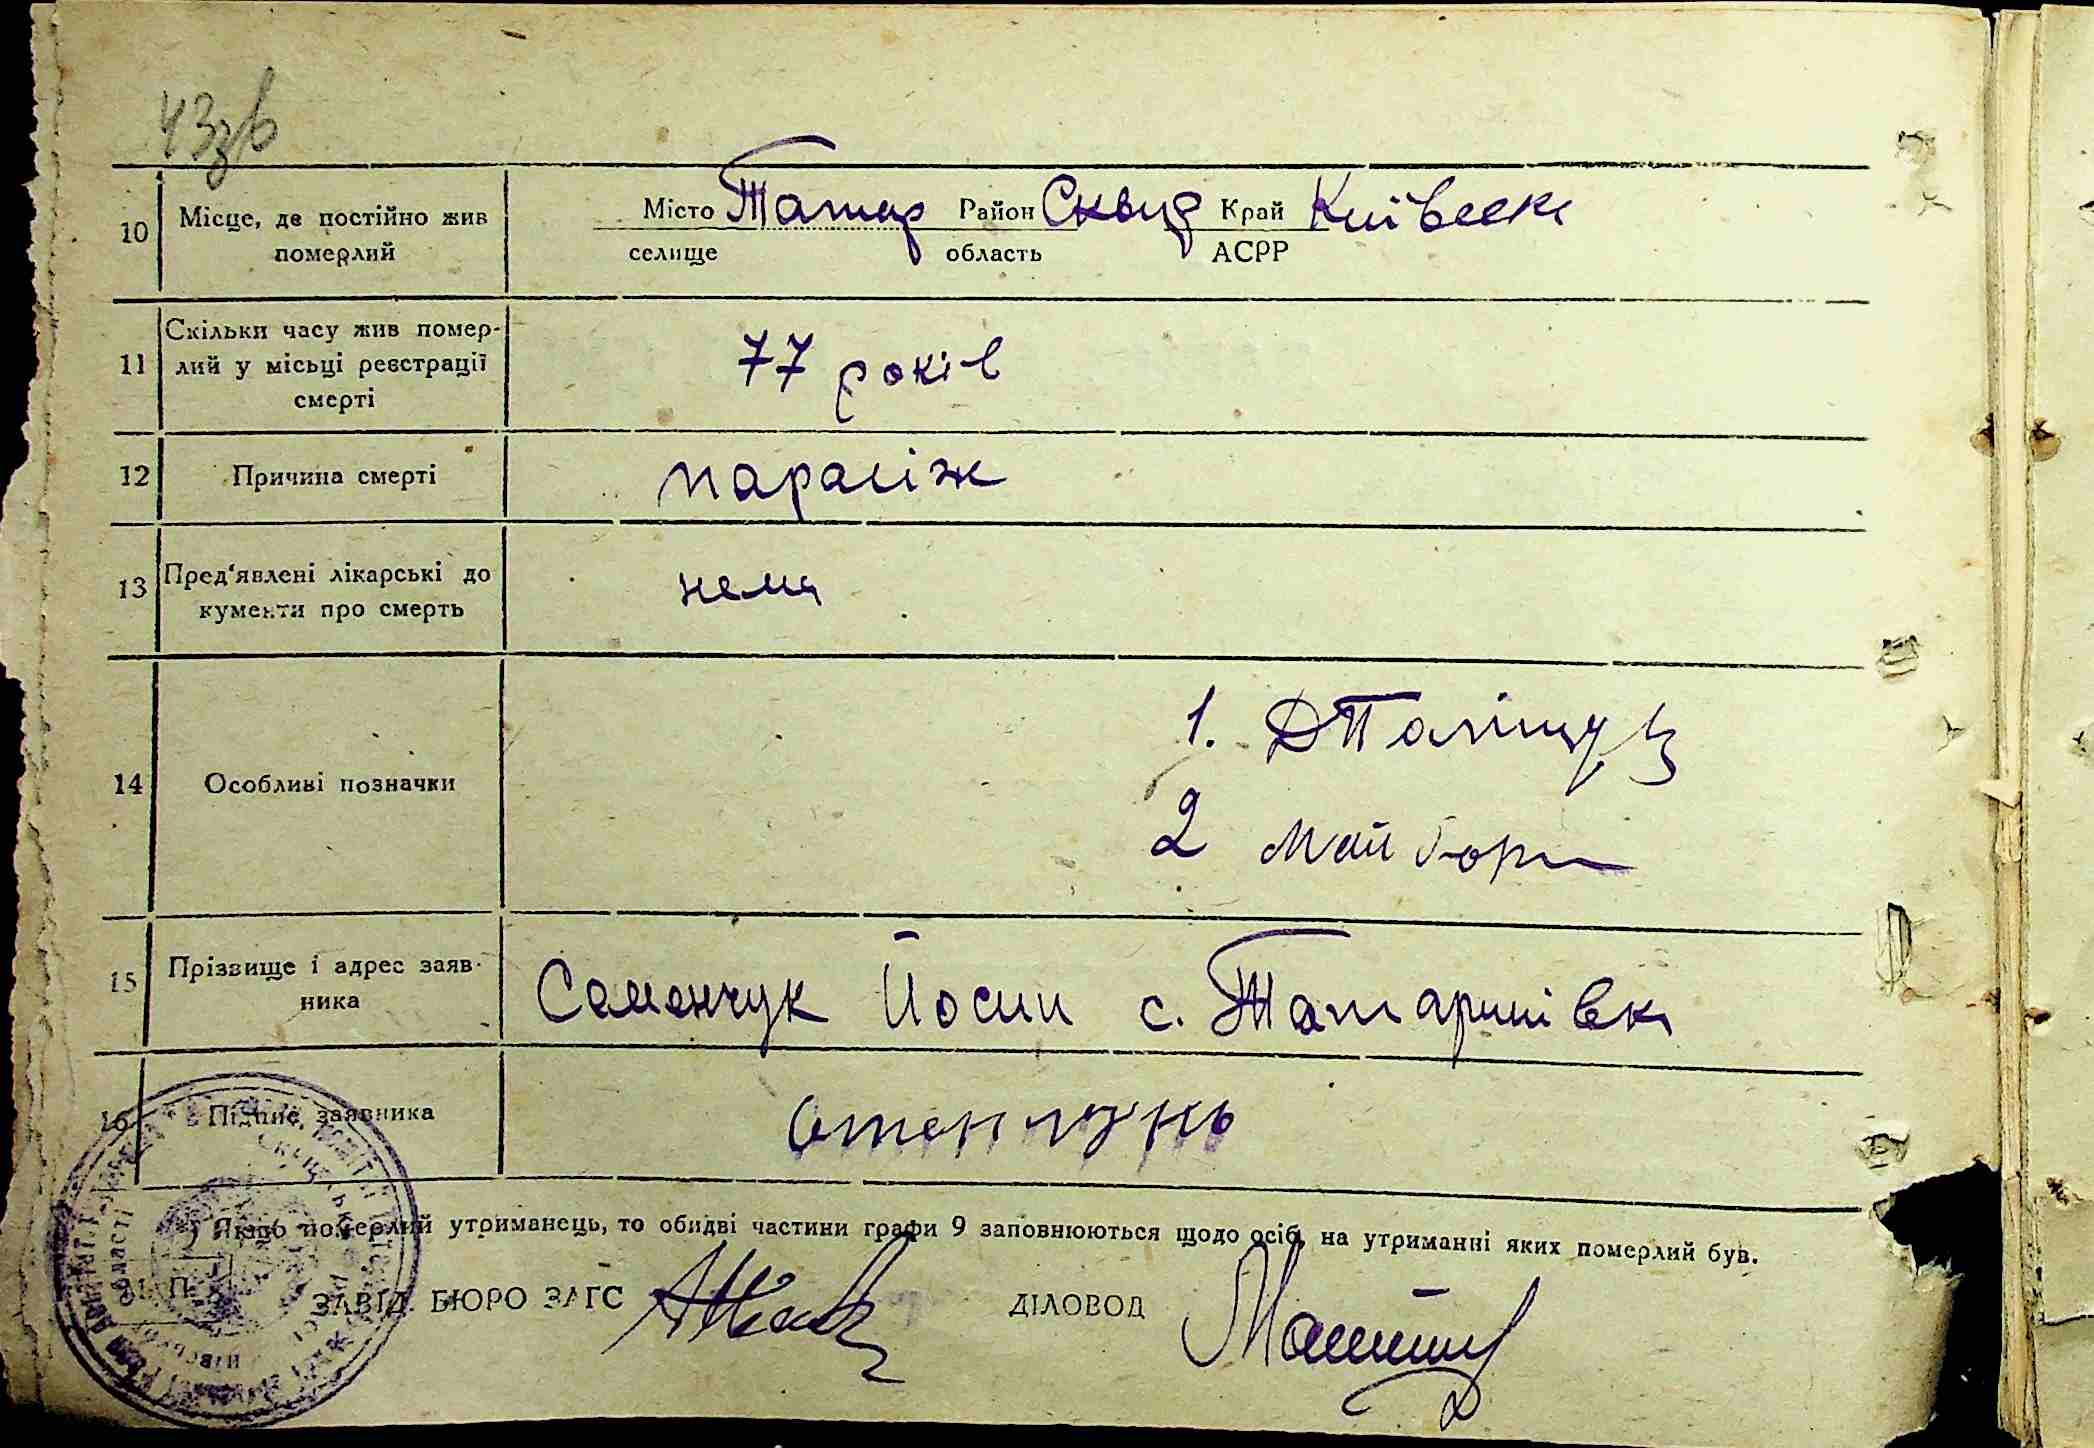 43зв
10 Місце, де постійно жив померлий
Місто Татар Район Сквир Край Київськ
селище область АСРР
11 Скільки часу жив помер-
лий у місьці реєстрації
смерті
77 років
12 Причина смерті параліж
13 Пред'явлені лікарські до
кументи про смерть
нема
14 Особливі позначки
1. ДПоліщук
2 Майбор
15 Прізвище і адрес заяв-
ника
Семенчук Йосип с. Татаринівк
16 Підпис заявника
Якщо померлий утриманець, то обидві частини графи 9 заповнюються щодо осіб, на утриманні яких померлий був.
М. П.
ЗАВІД. БЮРО ЗАГС ДІЛОВОД